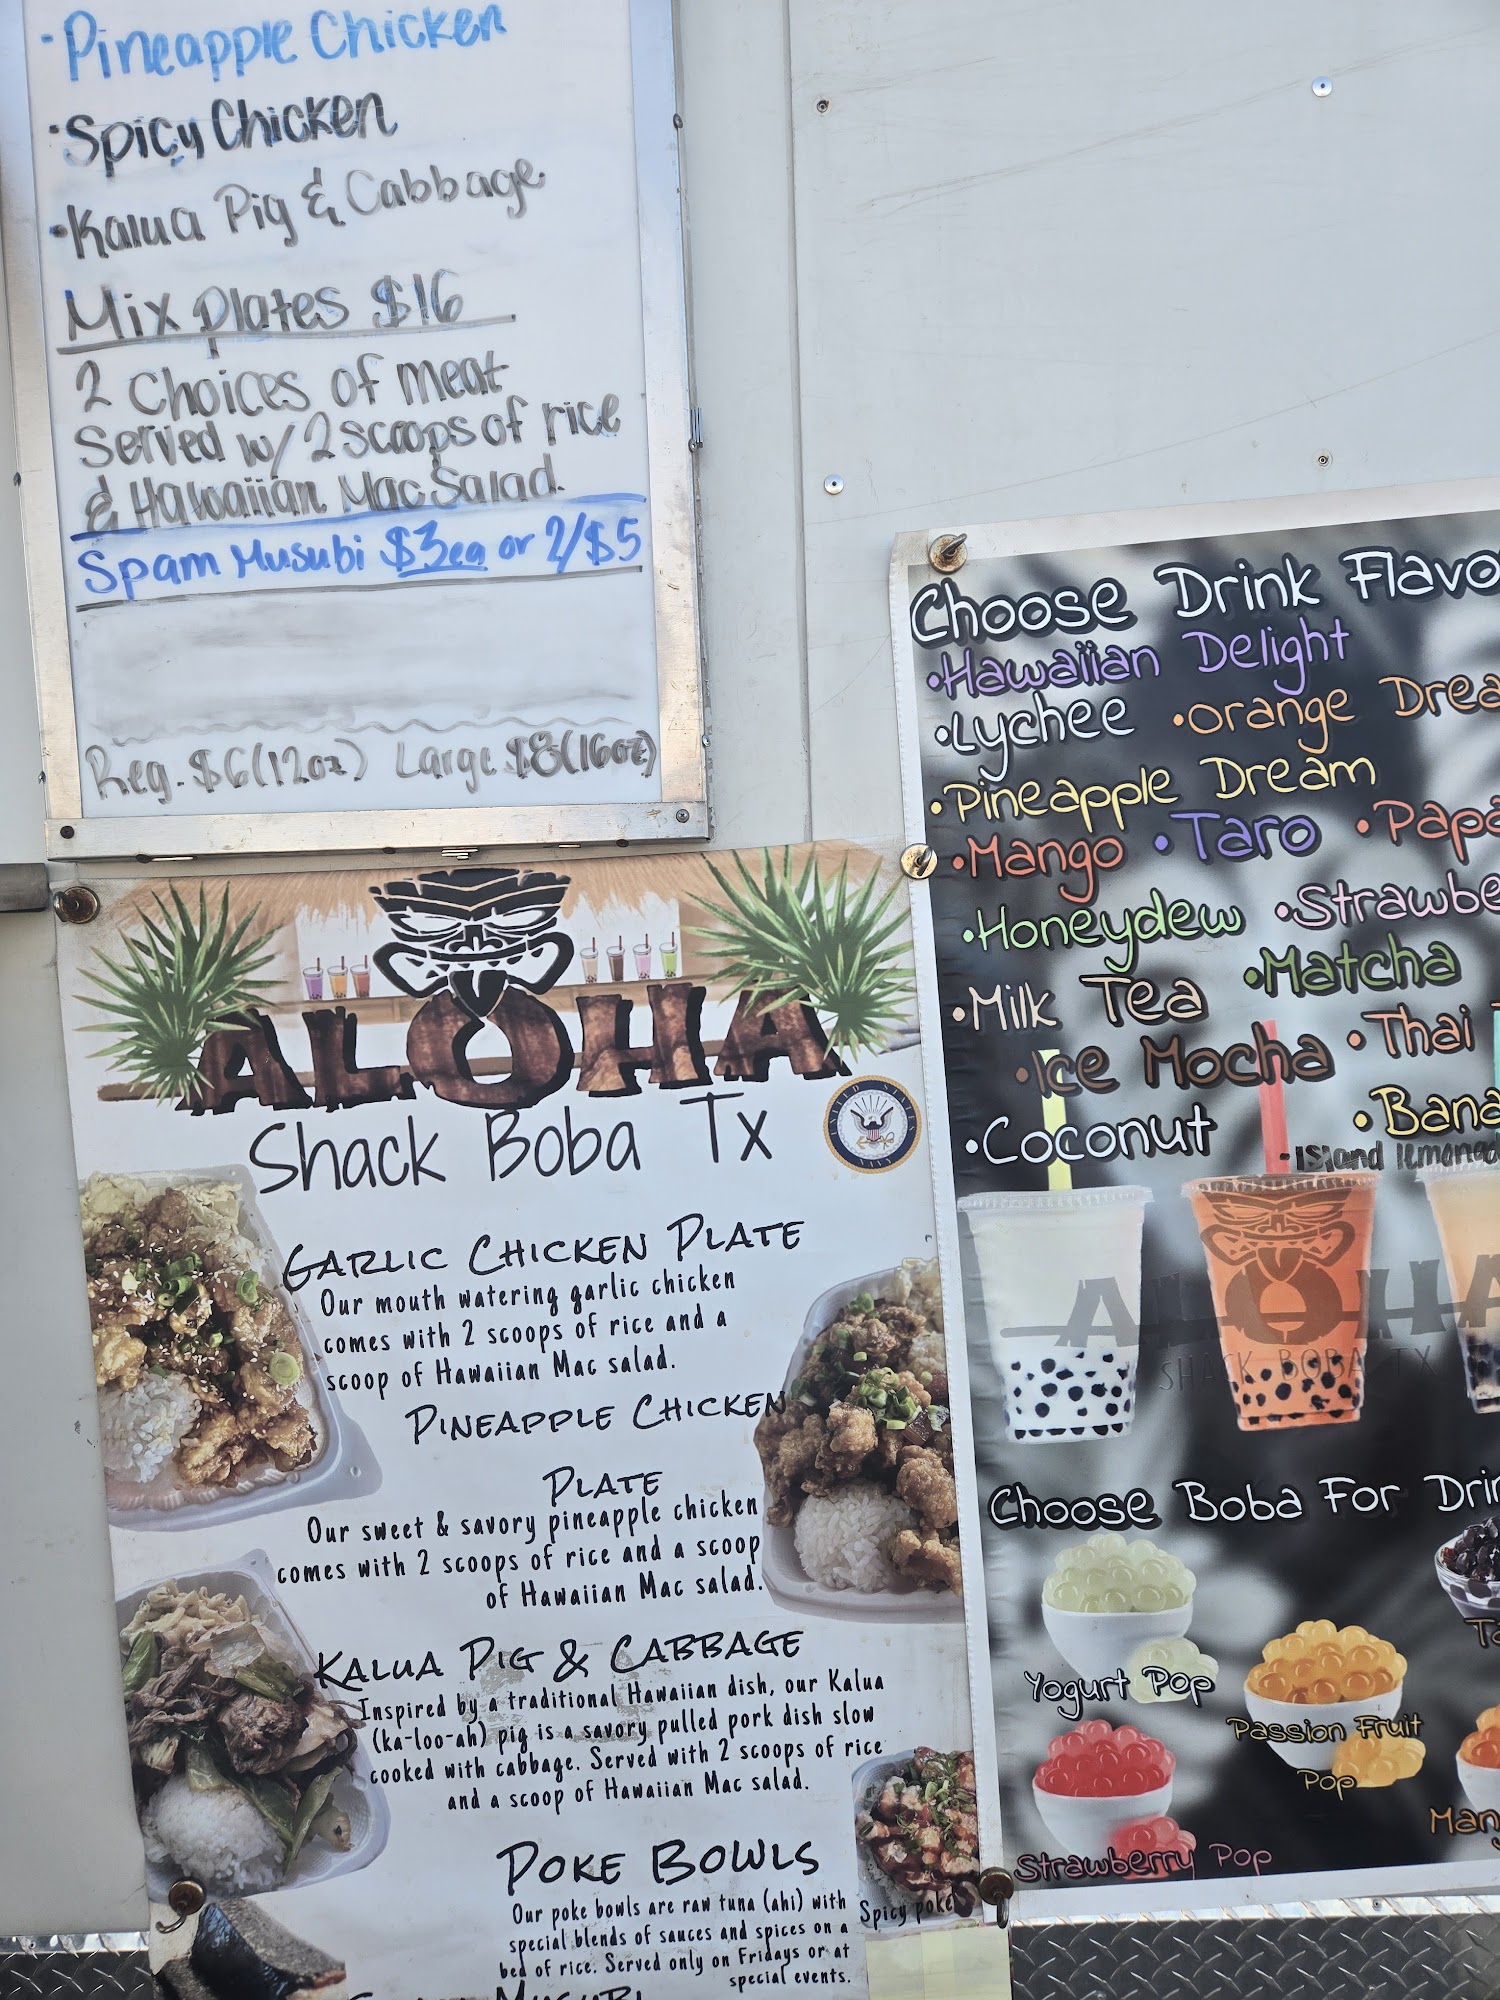 ·Pineapple Chicken
·Spicy Chicken
·Kalua Pig & Cabbage
Mix plates $16
2 Choices of meat
Served w/ 2 scoops of rice
& Hawaiian Mac Salad.
Spam Musubi $3ea or 2/$5
Reg. $6(12oz) Large $8(16oz)
ALOHA
Shack Boba Tx
UNITED STATES
NAVY
GARLIC CHICKEN PLATE
Our mouth watering garlic chicken
comes with 2 scoops of rice and a
scoop of Hawaiian Mac salad.
PINEAPPLE CHICKEN
PLATE
Our sweet & savory pineapple chicken
comes with 2 scoops of rice and a scoop
of Hawaiian Mac salad.
KALUA PIG & CABBAGE
Inspired by a traditional Hawaiian dish, our Kalua
(ka-loo-ah) pig is a savory pulled pork dish slow
cooked with cabbage. Served with 2 scoops of rice
and a scoop of Hawaiian Mac salad.
POKE BOWLS
Our poke bowls are raw tuna (ahi) with
special blends of sauces and spices on a
bed of rice. Served only on Fridays or at
special events.
Spicy poke
MUSUBI
Choose Drink Flavo
•Hawaiian Delight
•Lychee •Orange Drea
•Pineapple Dream
•Mango •Taro •Papa
•Honeydew •Strawbe
•Milk Tea •Matcha
•Ice Mocha •Thai
•Coconut •Bana
-Island lemonad
ALOHA
SHACK BOBA TX
Choose Boba For Drin
Yogurt Pop
Passion Fruit
Pop
Strawberry Pop
Mang